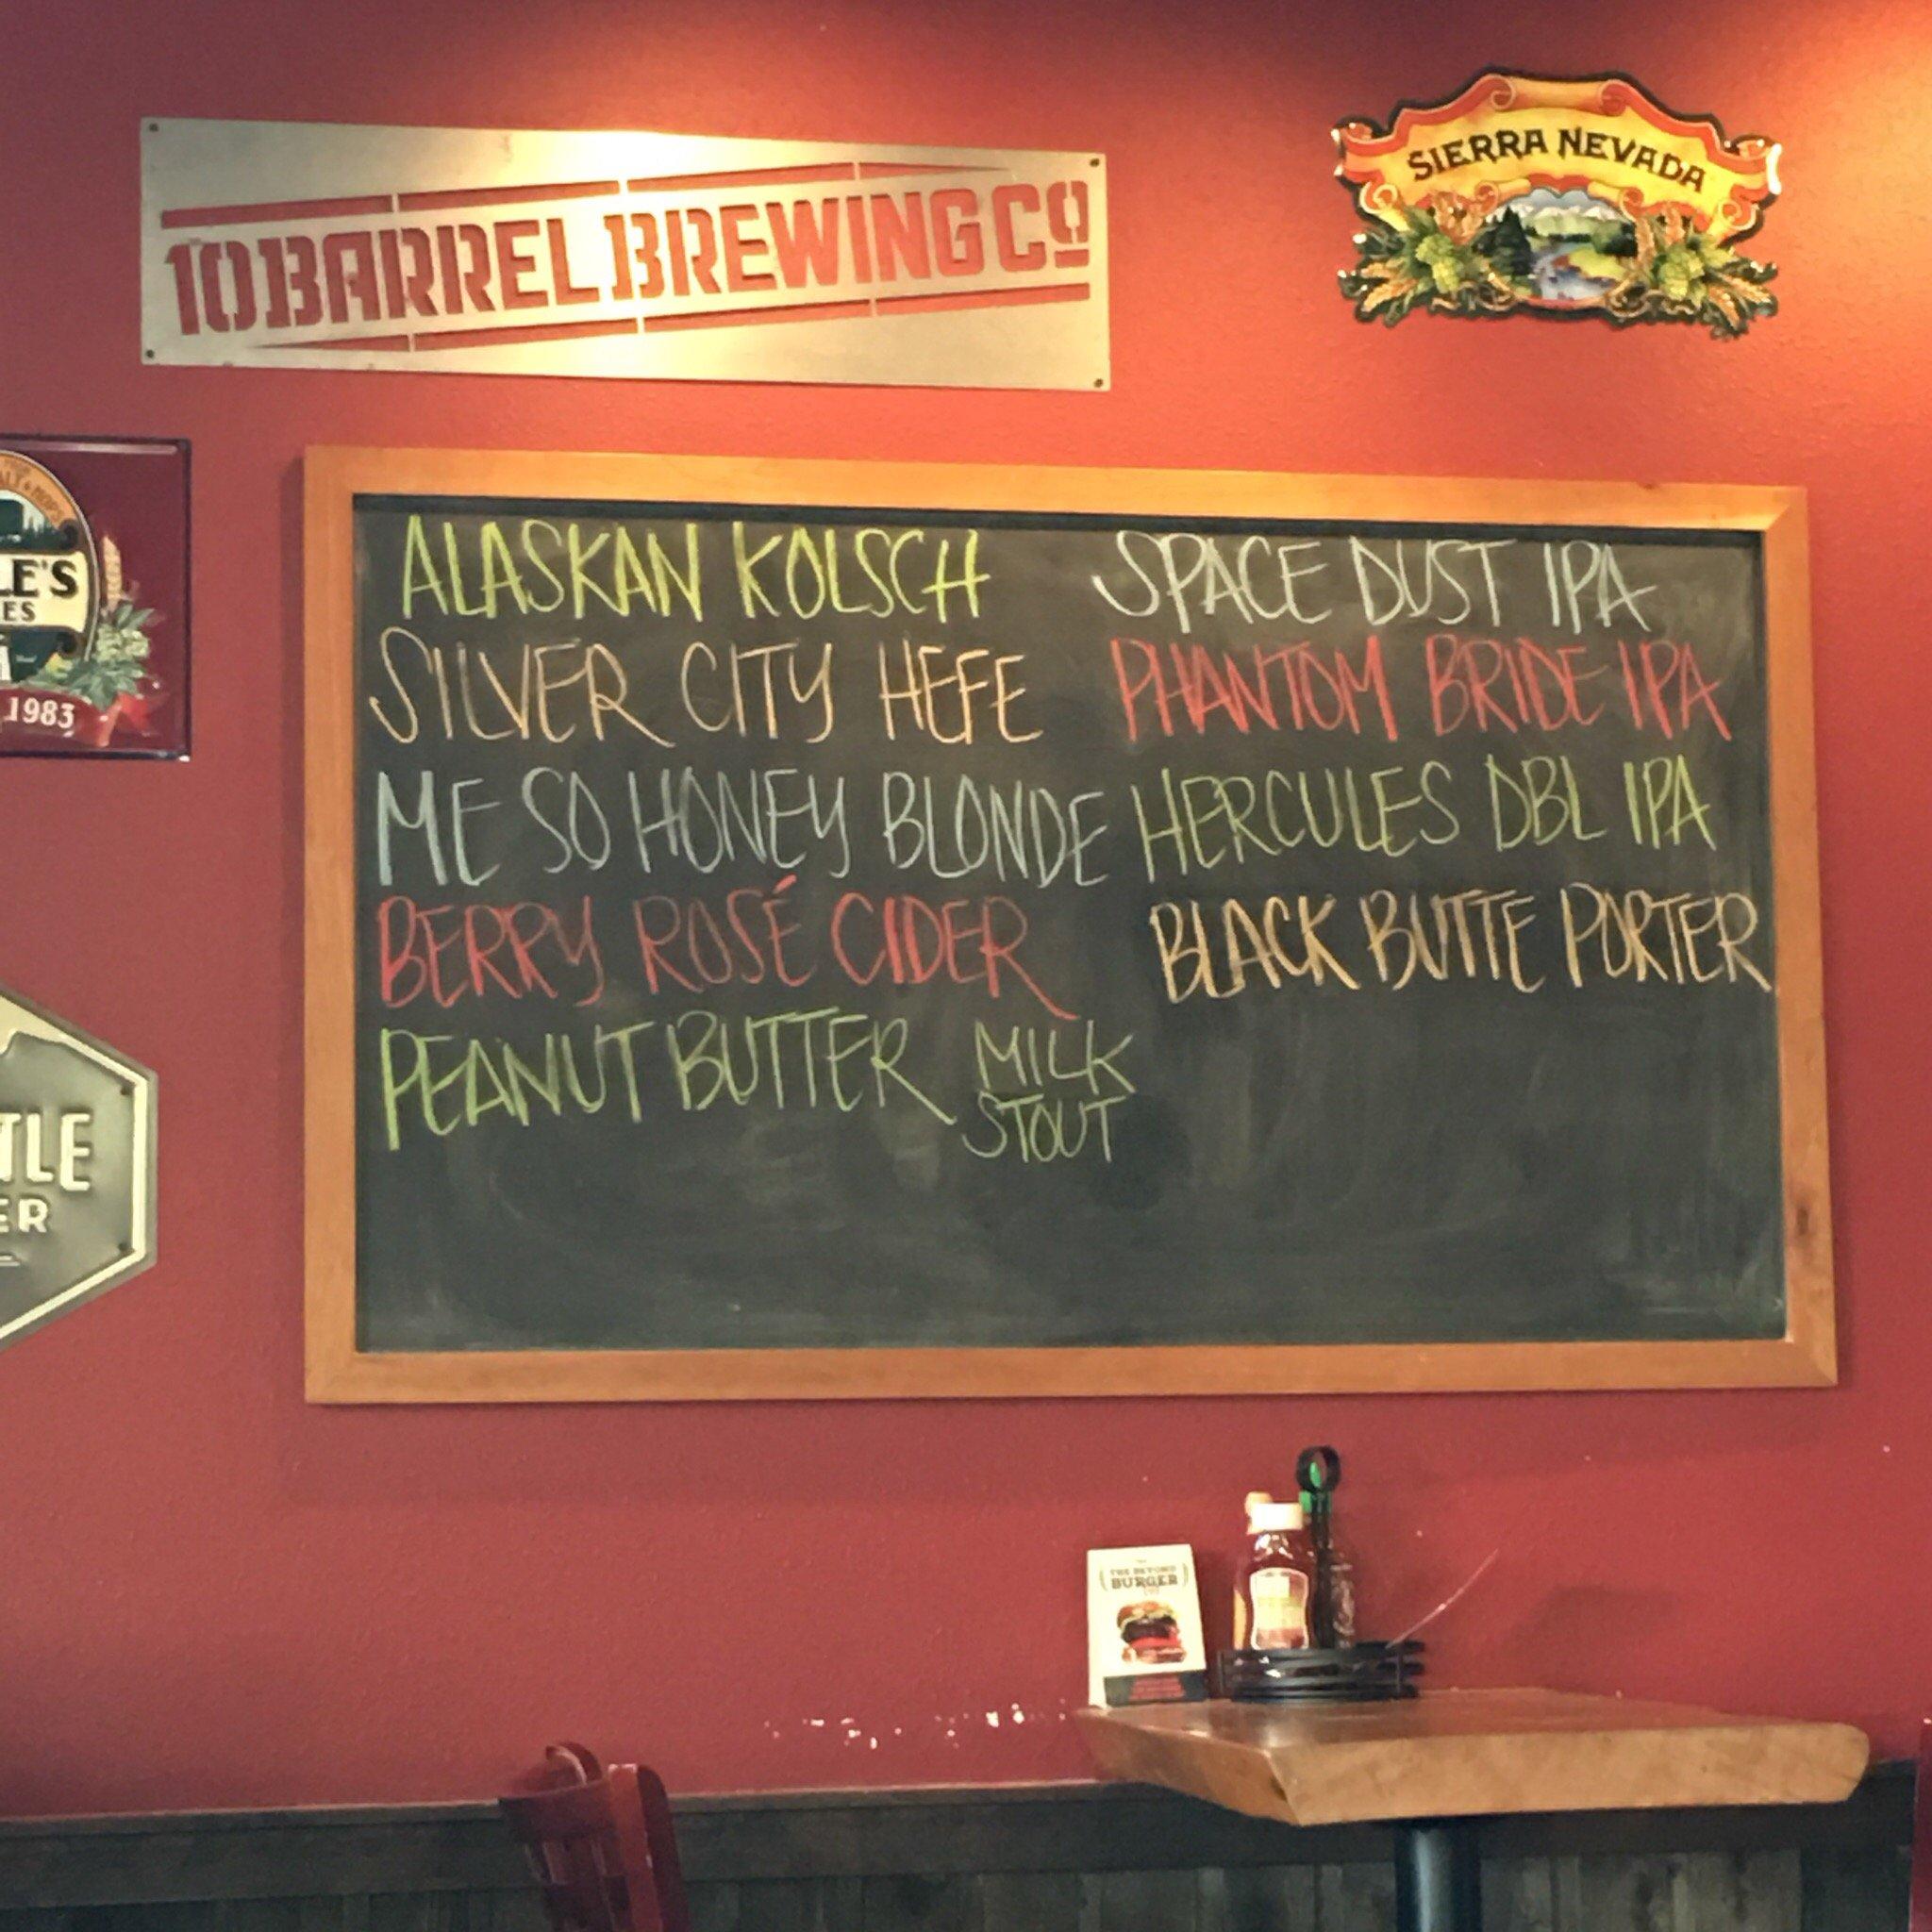 10 BARREL BREWING CO
SIERRA NEVADA
1983
ALASKAN KOLSCH
SILVER CITY HEFE
ME SO HONEY BLONDE
BERRY ROSÉ CIDER
PEANUT BUTTER MILK
STOUT
SPACE DUST IPA
PHANTOM BRIDE IPA
HERCULES DBL IPA
BLACK BUTTE PORTER
LE'S
ES
TLE
ER
THE BEYOND
BURGER